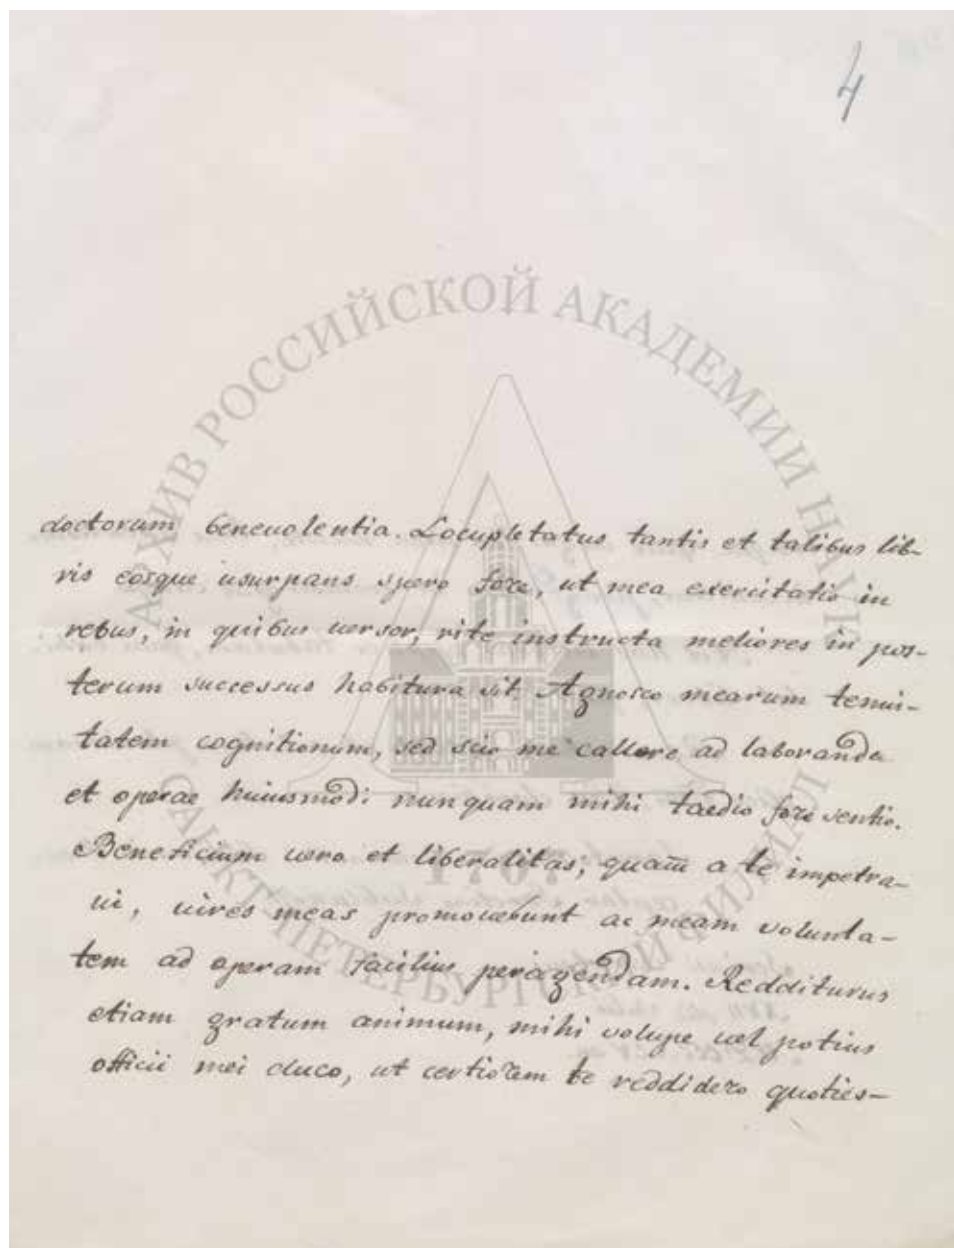 4
АРХИВ РОССИЙСКОЙ АКАДЕМИИ НАУК
doctorum beneuolentia. Locupletatus tantis et talibus lib-
ris eosque usurpans spero fore, ut mea exercitatio in
rebus, in quibus uersor, rite instructa meliores in pos-
terum successus habitura sit. Agnosco mearum tenui-
tatem cognitionum, sed scio me callere ad laborandu
et operae huiusmodi nunquam mihi taedio fore sentio.
Beneficium uero et liberalitas, quam a te impetra-
ui, uires meas promouebunt ac meam volunta-
tem ad operam facilius peragendam. Redditurus
etiam gratum animum, mihi volupe uel potius
officii mei duco, ut certiorem te reddidero quoties-
1707
САНКТ-ПЕТЕРБУРГСКИЙ ФИЛИАЛ